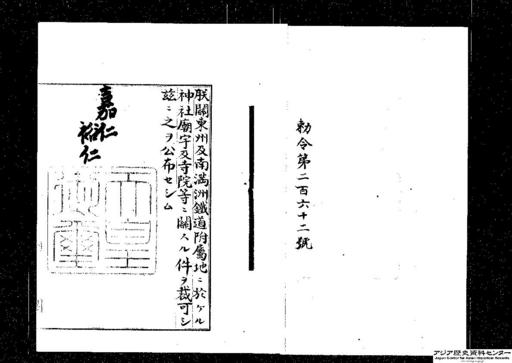 勅令第二百六十二號
朕關東州及南滿洲鐵道附屬地ニ於ケル
神社廟宇及寺院等ニ關スル件ヲ裁可シ
茲ニ之ヲ公布セシム
嘉仁
裕仁
天皇
御璽
アジア歴史資料センター
Japan Center for Asian Historical Records